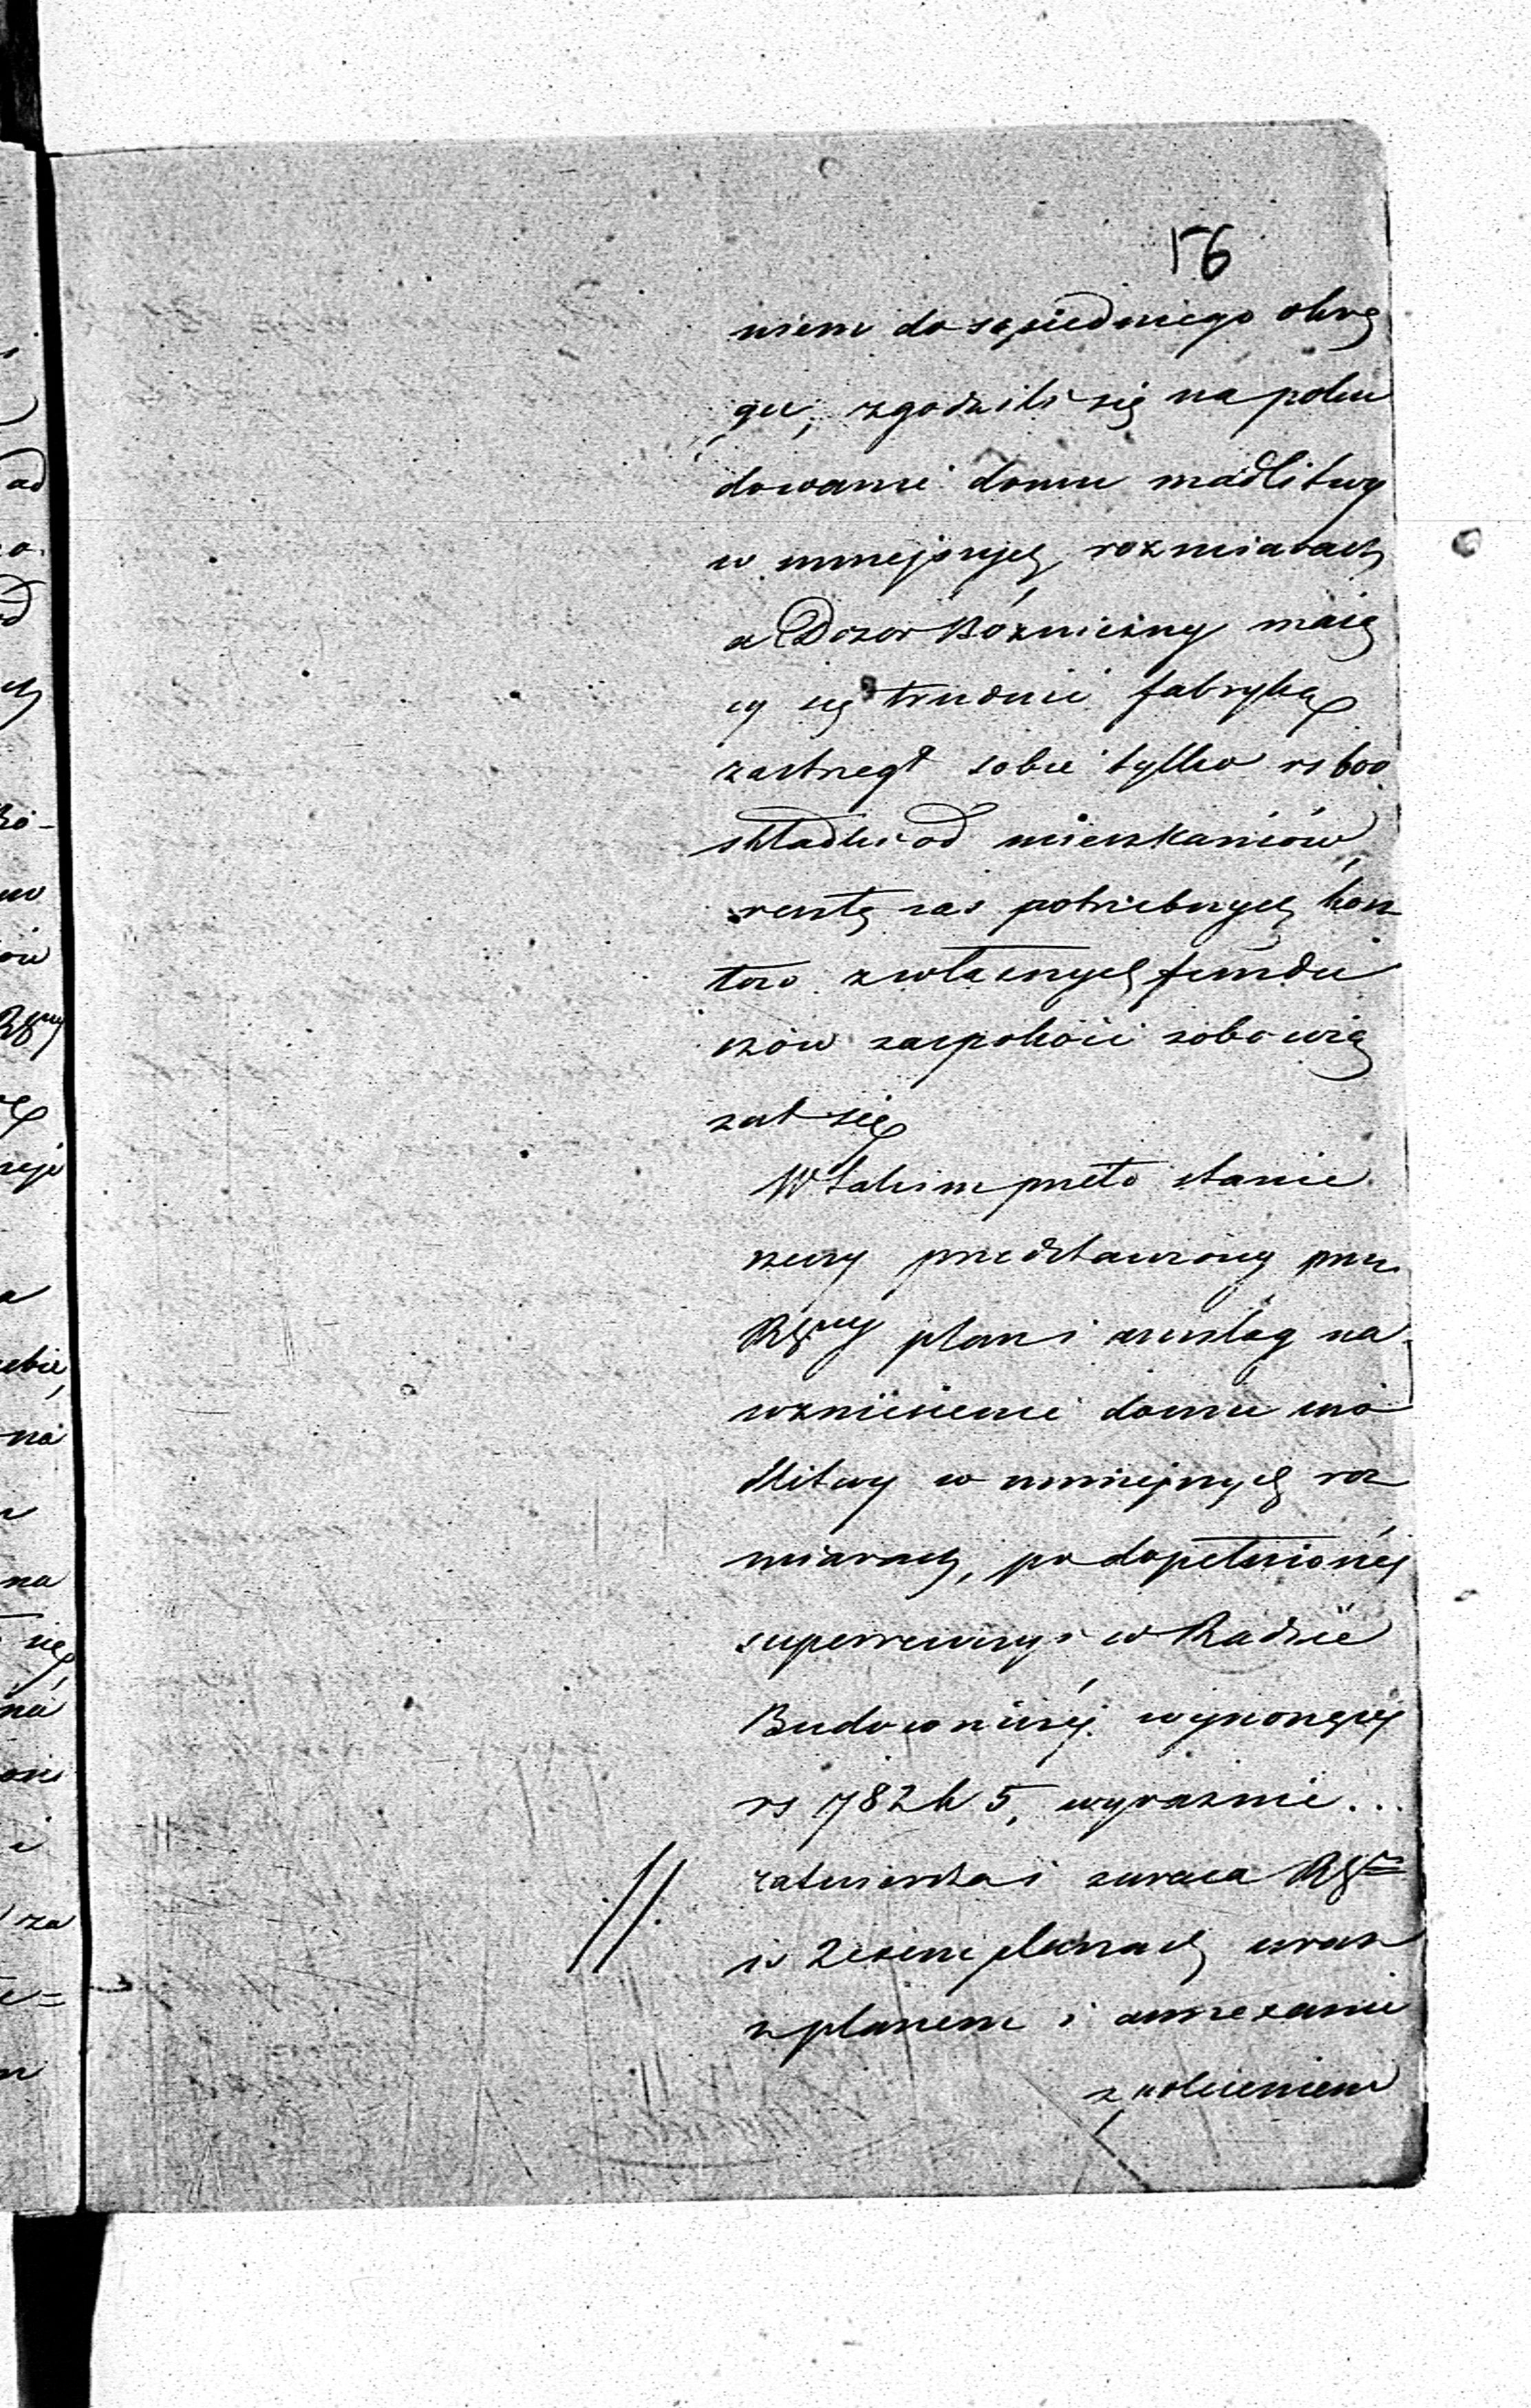 156
niem do sąsiedniego okrę
gu, zgodzili się na pobu
dowanie domu modlitwy
w mniejszych rozmiarach
a Dozor Bóżniczny mają
cy się trudnić fabryką
zastrzegł sobie tylko rs 600
składki od mieszkańców,
resztę zaś potrzebnych kosz
tow z własnych fundu
szów zaspokoić zobowią
zał się
W takim przeto stanie
rzeczy przedstawiony przez
RGny plan i anszlag na
wzniesienie domu mo
dlitwy w mniejszych roz
miarach, po dopełnionéj
superrewizyi w Radzie
Budowniczéj wynoszący
rs 782 k 5, wyraznie...
zatwierdza i zwraca RG
w 2 exemplarzach wraz
z planem i
z poleceniem